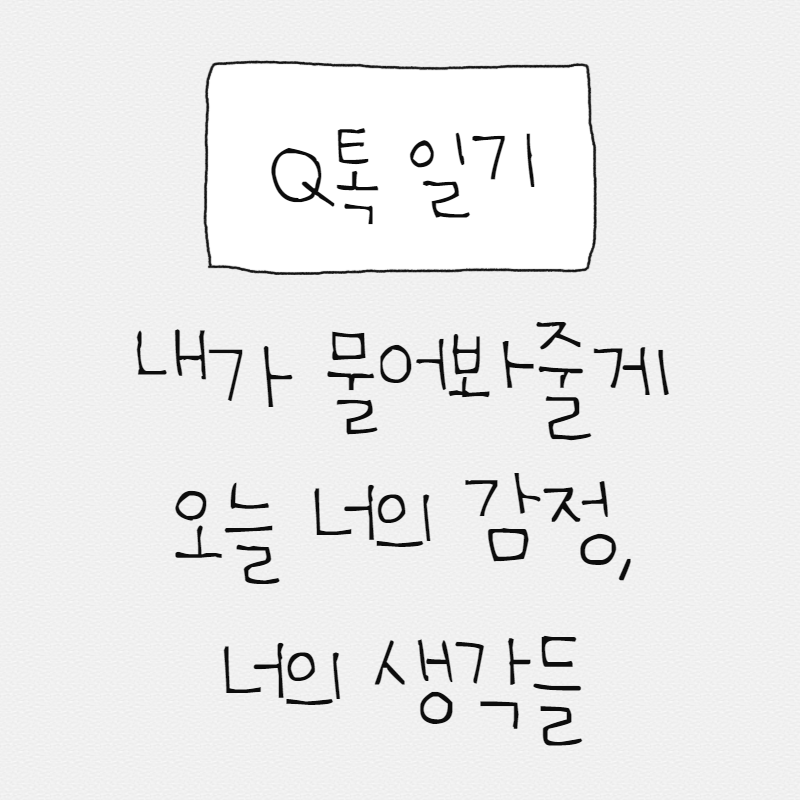 Q톡 일기
내가 물어봐줄게
오늘 너의 감정,
너의 생각들